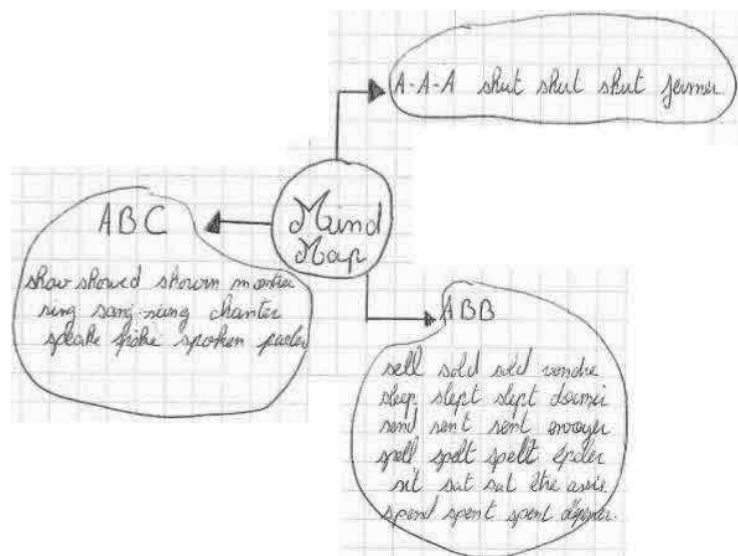 A-A-A shut shut shut fermer
Mind
Map
ABC
show showed shown montrer
sing sang sung chanter
speake spoke spoken parler
ABB
sell sold sold vendre
sleep slept slept dormir
send sent sent envoyer
spell spelt spelt épeler
sit sat sat être assis
spend spent spent dépenser